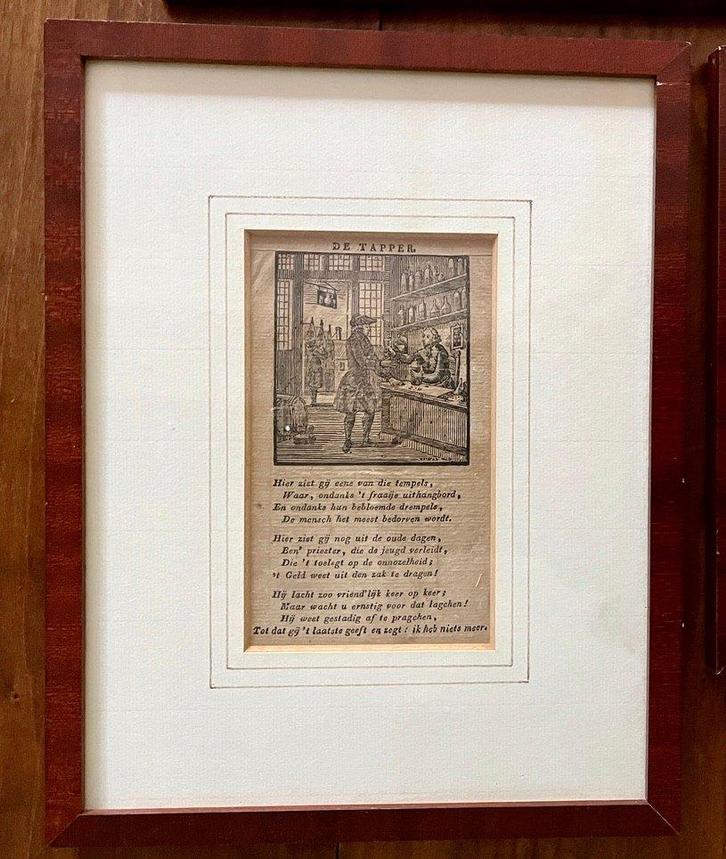 DE TAPPER.
Hier ziet gij eene van die tempels,
Waar, ondanks 't fraaije uithangbord,
En ondanks hun bebloemde drempels,
De mensch het meest bedorven wordt.
Hier ziet gij nog uit de oude dagen,
Een' priester, die de jeugd verleidt,
Die 't toelegt op de onnozelheid;
't Geld weet uit den zak te dragen!
Hij lacht zoo vriend'lijk keer op keer;
Maar wacht u ernstig voor dat lagchen!
Hij weet gestadig af te pragchen,
Tot dat gij 't laatste geeft en zegt: ik heb niets meer.